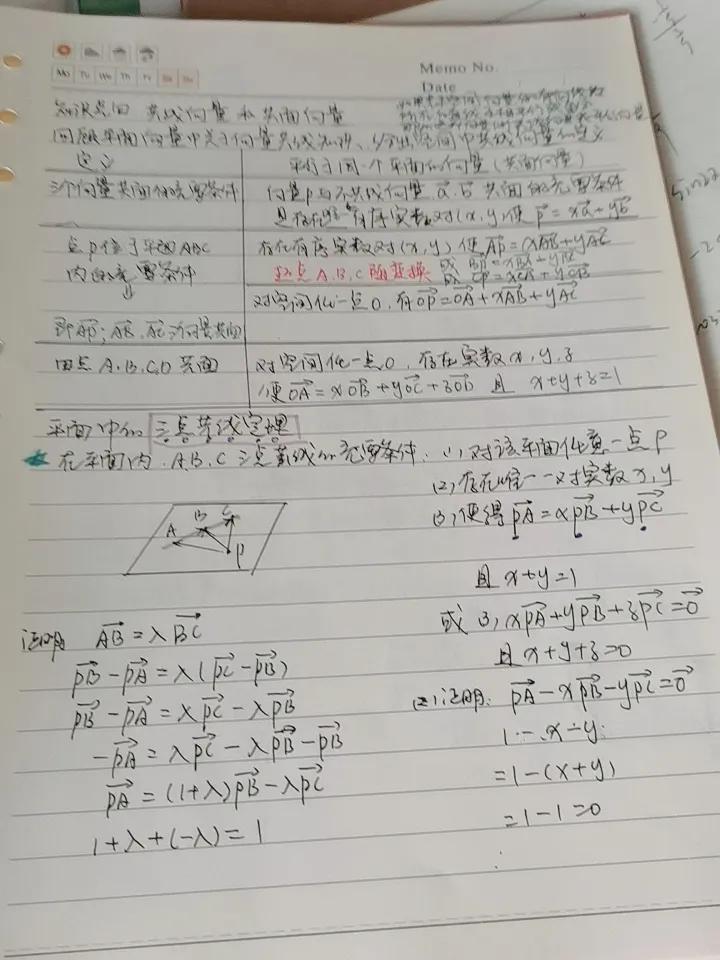 Mo Tu We Th Fr Sa Su
Memo No.
Date
知识点四 共线向量和共面向量
回顾平面向量中关于向量共线知识、给出空间中共线向量的定义
定义
平行于同一个平面的向量(共面向量)
三个向量共面的充要条件
向量p与不共线向量 a⃗, b⃗ 共面的充要条件
是存在唯一有序实数对(x, y)使 p⃗ = xa⃗ + yb⃗
点P位于平面ABC
内的充要条件
↓
即AP⃗; AB⃗, AC⃗三个向量共面
存在有序实数对(x, y)使AP⃗ = xAB⃗ + yAC⃗
或 BP⃗ = xBA⃗ + yBC⃗
点 A、B、C 随意换
或 CP⃗ = xCA⃗ + yCB⃗
对空间任一点O, 有OP⃗ = OA⃗ + xAB⃗ + yAC⃗
四点 A、B、C、D 共面
对空间任一点O, 存在实数 x, y, z
使OA⃗ = xOB⃗ + yOC⃗ + zOD⃗ 且 x+y+z=1
平面中的三点共线定理
在平面内, A、B、C三点共线的充要条件. (1) 对该平面任意一点P
(2) 存在唯一一对实数 x, y
(3) 使得PA⃗ = xPB⃗ + yPC⃗
且 x+y=1
或 3, xPA⃗ + yPB⃗ + zPC⃗ = 0⃗
且 x+y+z=0
A B C P
证明 AB⃗ = λBC⃗
PB⃗ - PA⃗ = λ(PC⃗ - PB⃗)
PB⃗ - PA⃗ = λPC⃗ - λPB⃗
-PA⃗ = λPC⃗ - λPB⃗ - PB⃗
PA⃗ = (1+λ)PB⃗ - λPC⃗
1+λ+(-λ) = 1
(2) 证明: PA⃗ - xPB⃗ - yPC⃗ = 0⃗
1 - x - y
= 1-(x+y)
= 1-1=0